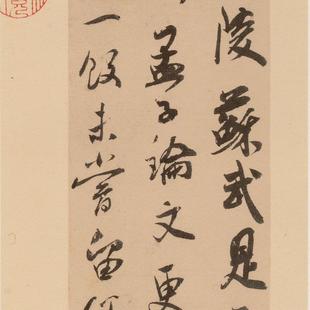 陵蘇武是
孟子論文更
一飯未嘗留